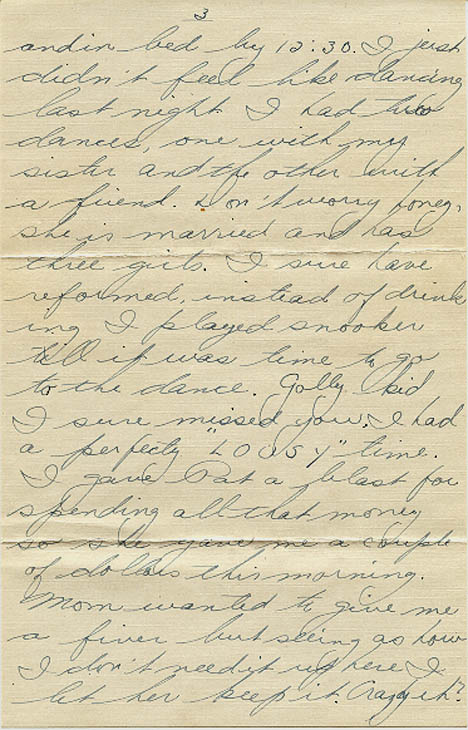 3
and in bed by 12:30. I just
didn't feel like dancing
last night. I had two
dances, one with my
sister and the other with
a friend. Don't worry honey,
she is married and has
three girls. I sure have
reformed, instead of drink
ing I played snooker
till it was time to go
to the dance. Golly kid
I sure missed you. I had
a perfecty "LOUSY" time.
I gave Pat a blast for
spending all that money
so she gave me a couple
of dollars this morning.
Mom wanted to give me
a fiver but seeing as how
I don't need it up here I
let her keep it. Crazy eh?